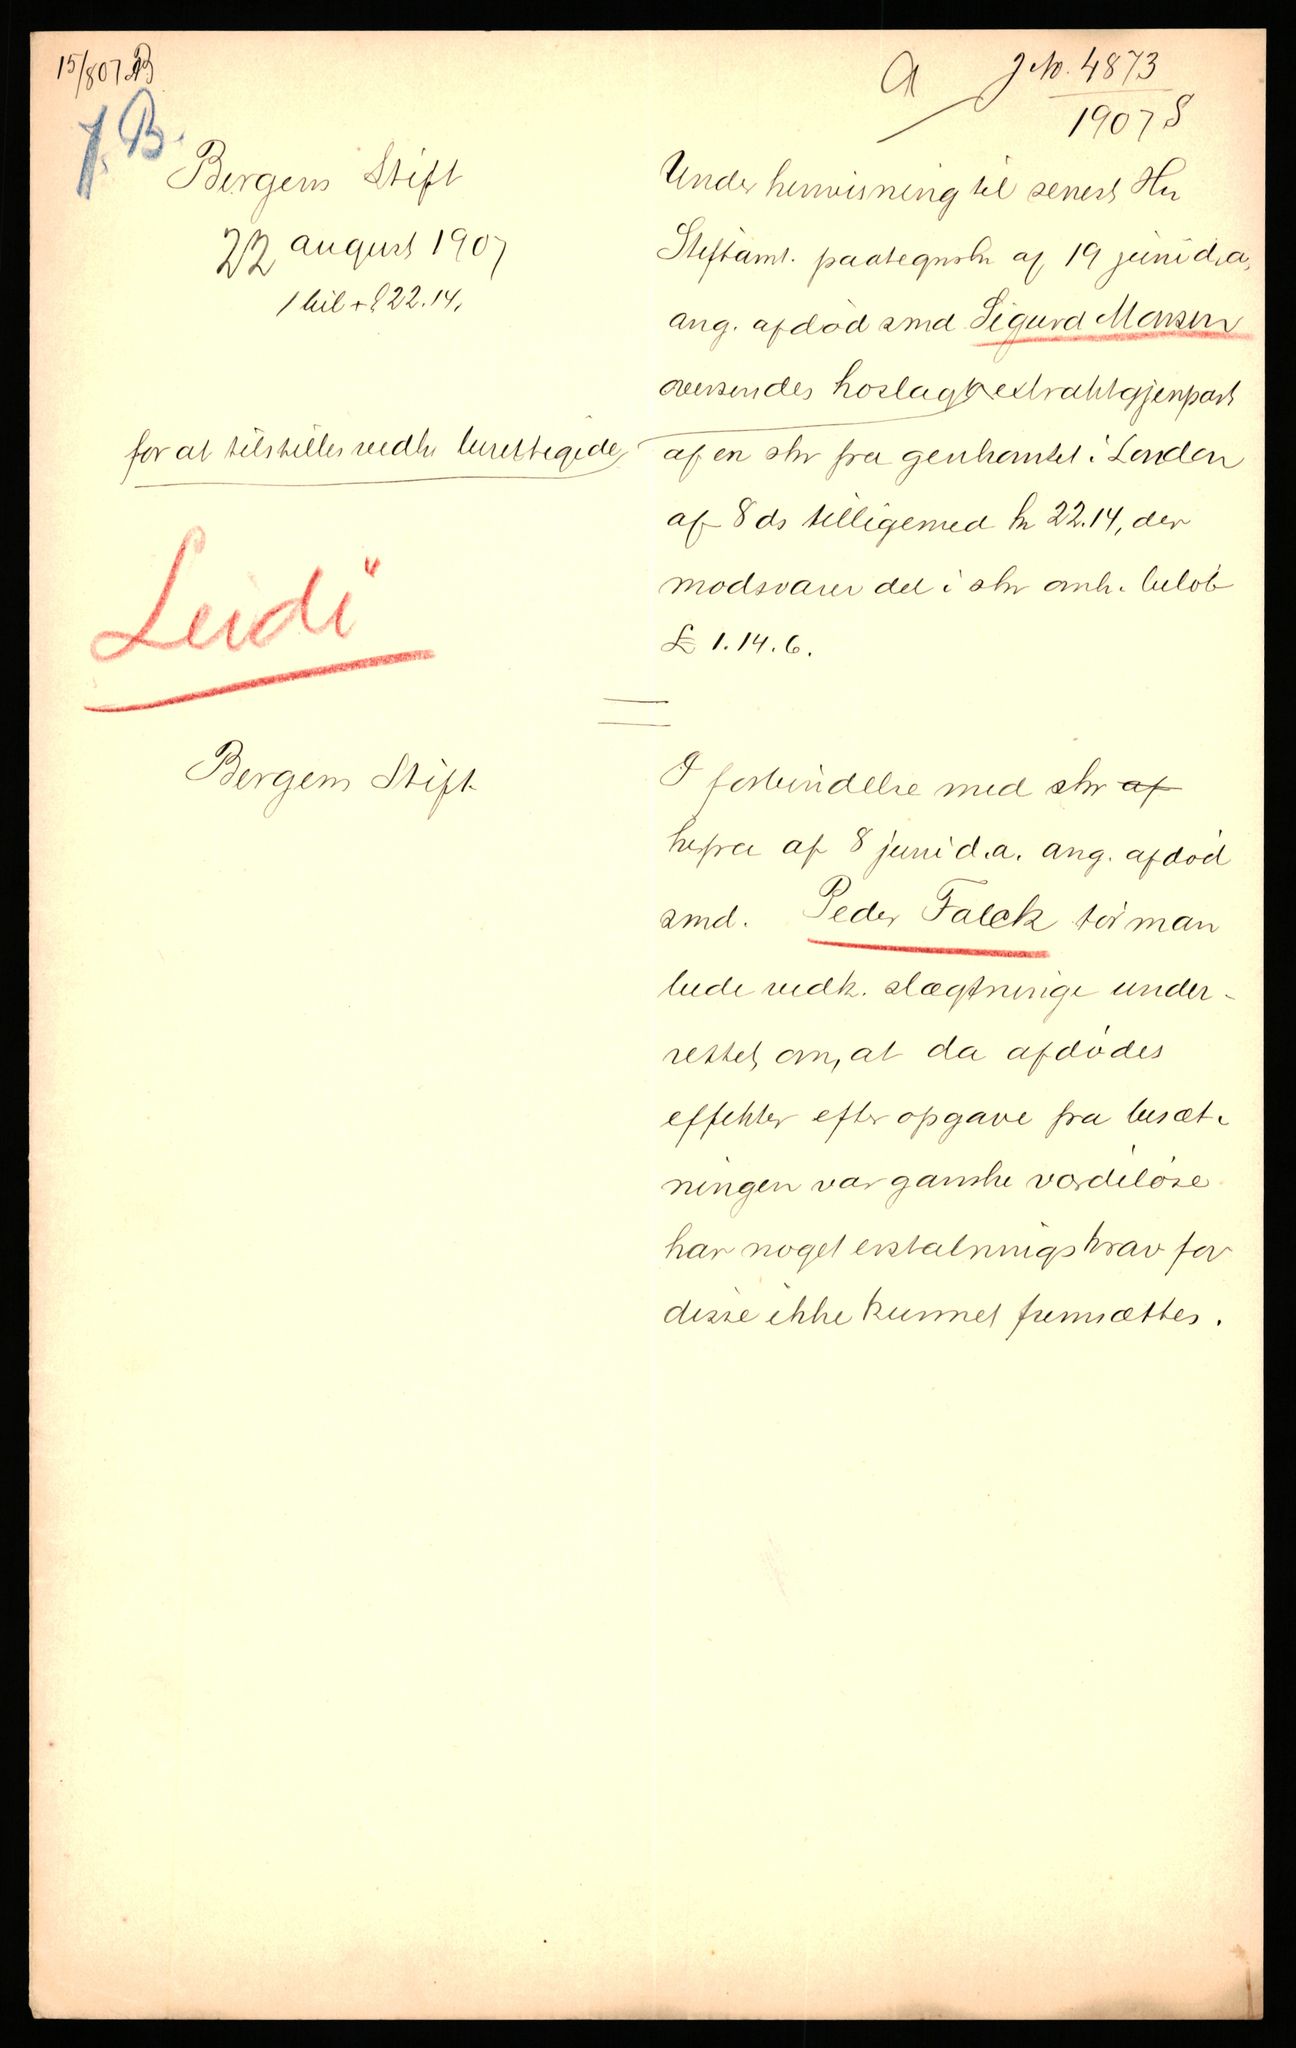 15/8 07
A J No. 4873
1907 S
J. B.
Bergens Stift
22 august 1907
1 bil + k 22.14.
for at tilstilles vedk berettigede
"Leidi"
Under henvisning til senest Hr
Stiftamt. paategnskr af 19 juni d.a.
ang. afdöd smd Sigurd Monsen
oversendes hoslagt extraktgjenpart
af en skr fra genkonsul. i London
af 8 ds tilligemed kr 22.14, der
modsvarer det i skr omh. belöb
£ 1.14.6.
Bergens Stift
I forbindelse med skr af
hefra af 8 juni d.a. ang. afdöd
smd. Peder Falck tör man
bede vedk. slægtninge under-
rettet om, at da afdödes
effekter efter opgave fra besæt-
ningen var ganske værdilöse
har noget erstatningskrav for
disse ikke kunnet fremsættes.